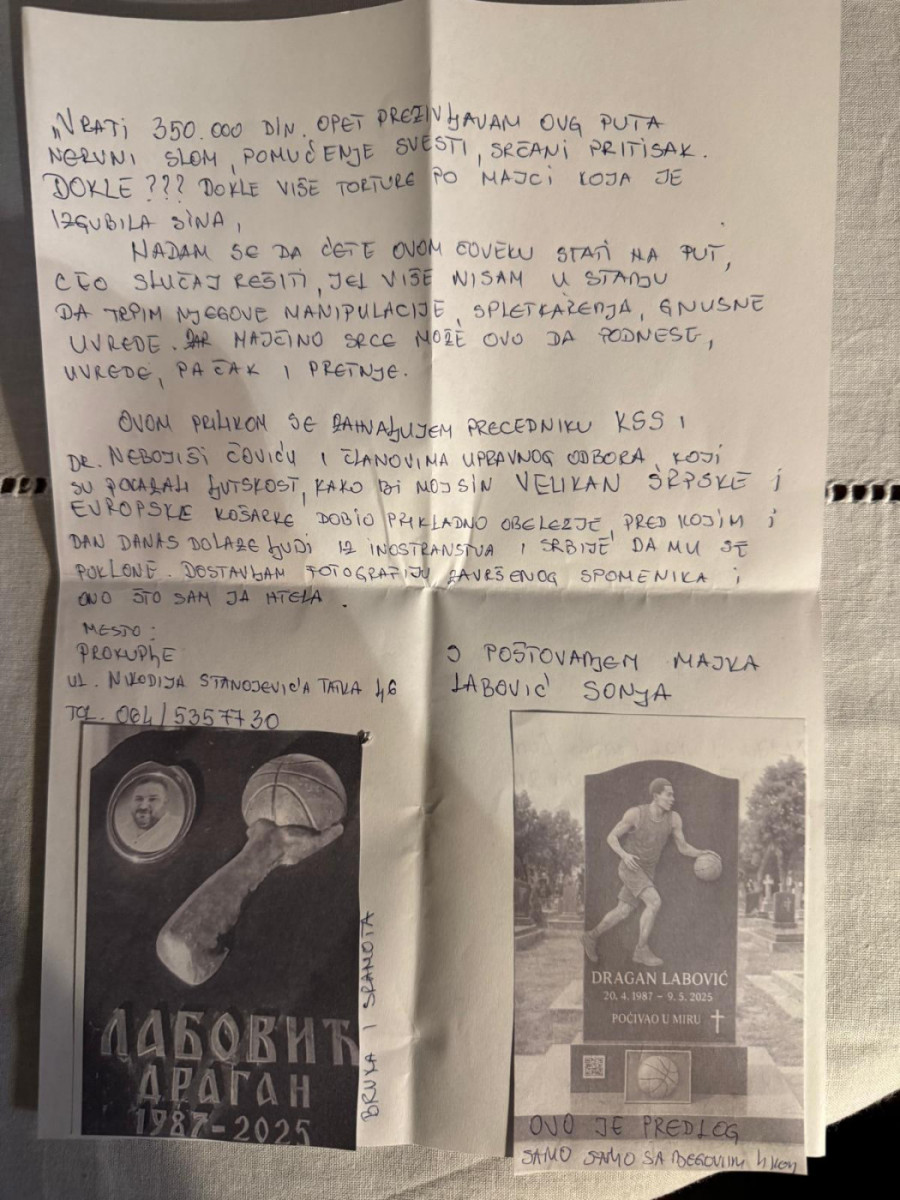 „VRATI 350.000 DIN. OPET PREŽIVLJAVAM OVG PUTA
NERVNI SLOM, POMUĆENJE SVESTI, SRČANI PRITISAK.
DOKLE ??? DOKLE VIŠE TORTURE PO MAJCI KOJA JE
IZGUBILA SINA,
NADAM SE DA ĆETE OVOM ČOVEKU STATI NA PUT,
CEO SLUČAJ REŠITI, JEL VIŠE NISAM U STANJU
DA TRPIM NJEGOVE MANIPULACIJE, SPLETKARENJA, GNUSNE
UVREDE. MAJČINO SRCE MOŽE OVO DA PODNESE,
UVREDE, PA ČAK I PRETNJE.
OVOM PRILIKOM SE ZAHVALJUJEM PRECEDNIKU KSS I
DR. NEBOJIŠI ČOVIĆU I ČLANOVIMA UPRAVNOG ODBORA, KOJI
SU POKAZALI LJUTSKOST, KAKO BI MOJ SIN VELIKAN SRPSKE I
EVROPSKE KOŠARKE DOBIO PRIKLADNO OBELEZJE, PRED KOJIM I
DAN DANAS DOLAZE LJUDI IZ INOSTRANSTVA I SRBIJE DA MU SE
POKLONE. DOSTAVLJAM FOTOGRAFIJU ZAVRŠENOG SPOMENIKA I
ONO ŠTO SAM JA HTELA.
MESTO:
PROKUPLJE
UL. NIKODIJA STANOJEVIĆA TATKA 46
TEL. 064/5357730
S POŠTOVANJEM MAJKA
LABOVIĆ SONJA
ЛАБОВИЋ
ДРАГАН
1987-2025
BRUKA I SRAMOTA
DRAGAN LABOVIĆ
20. 4. 1987 – 9. 5. 2025
POČIVAO U MIRU
OVO JE PREDLOG
SAMO SA NJEGOVIM